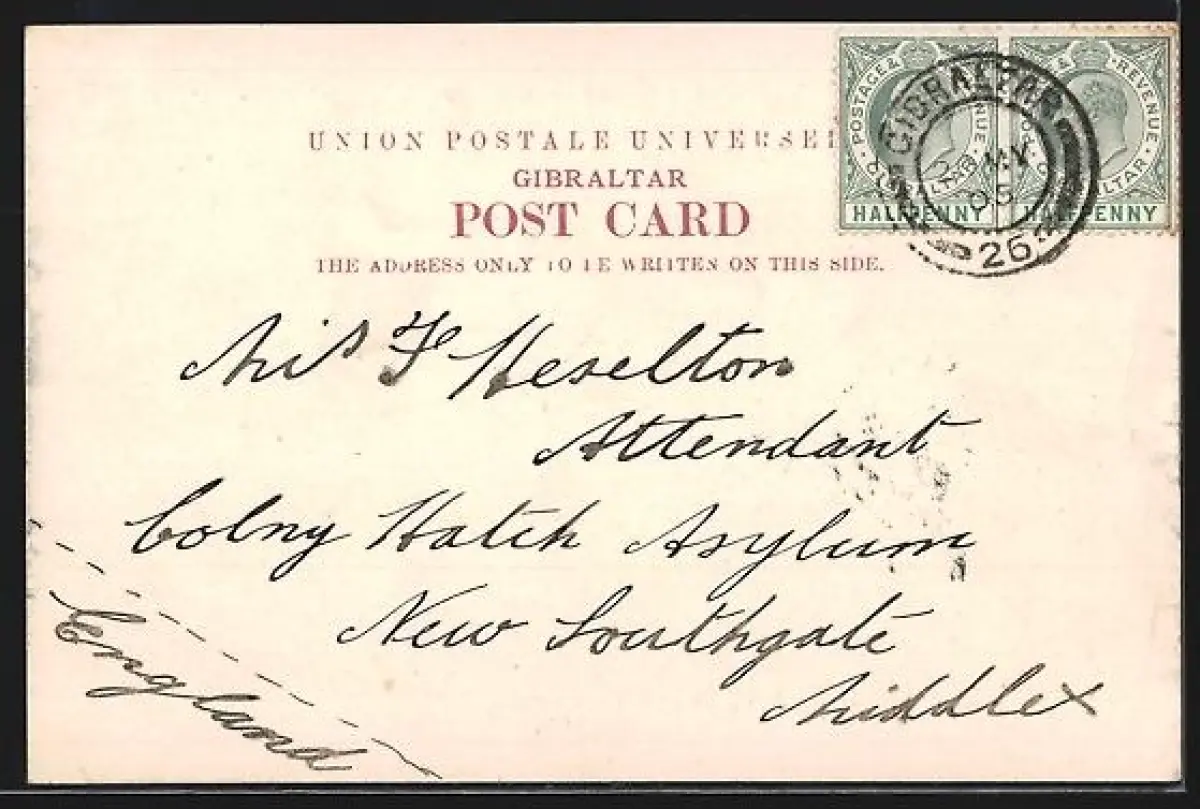 UNION POSTALE UNIVERSEL
GIBRALTAR
POST CARD
THE ADDRESS ONLY TO BE WRITTEN ON THIS SIDE.
POSTAGE & REVENUE
GIBRALTAR
HALFPENNY
POSTAGE & REVENUE
GIBRALTAR
HALFPENNY
GIBRALTAR
MY
26
Miss F Heselton
Attendant
Colny Hatch Asylum
New Southgate
Middlex
England